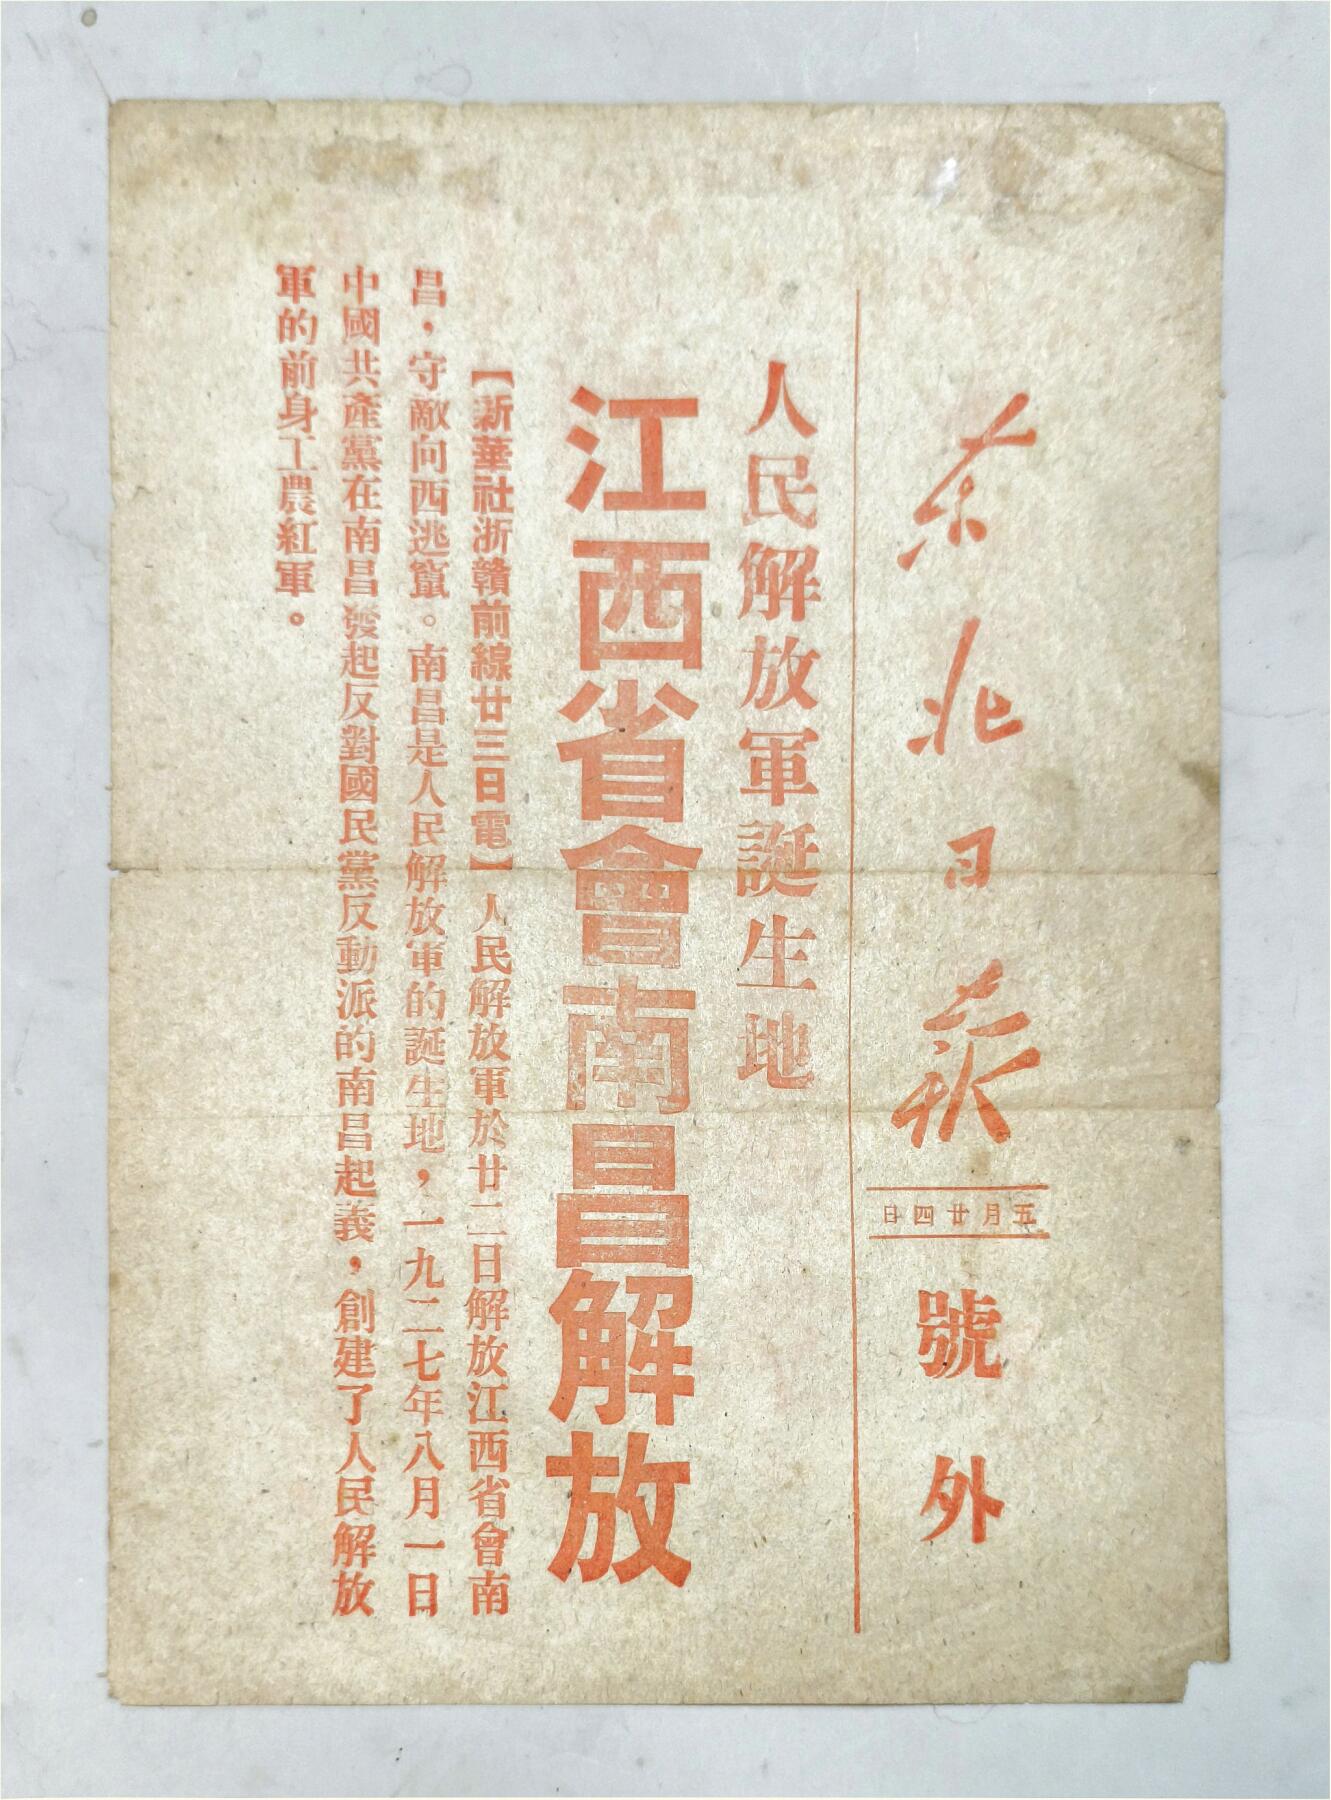 东北日报
五月廿四日
號外
人民解放軍誕生地
江西省會南昌解放
【新華社浙贛前線廿三日電】人民解放軍於廿二日解放江西省會南
昌，守敵向西逃竄。南昌是人民解放軍的誕生地，一九二七年八月一日
中國共產黨在南昌發起反對國民黨反動派的南昌起義，創建了人民解放
軍的前身工農紅軍。